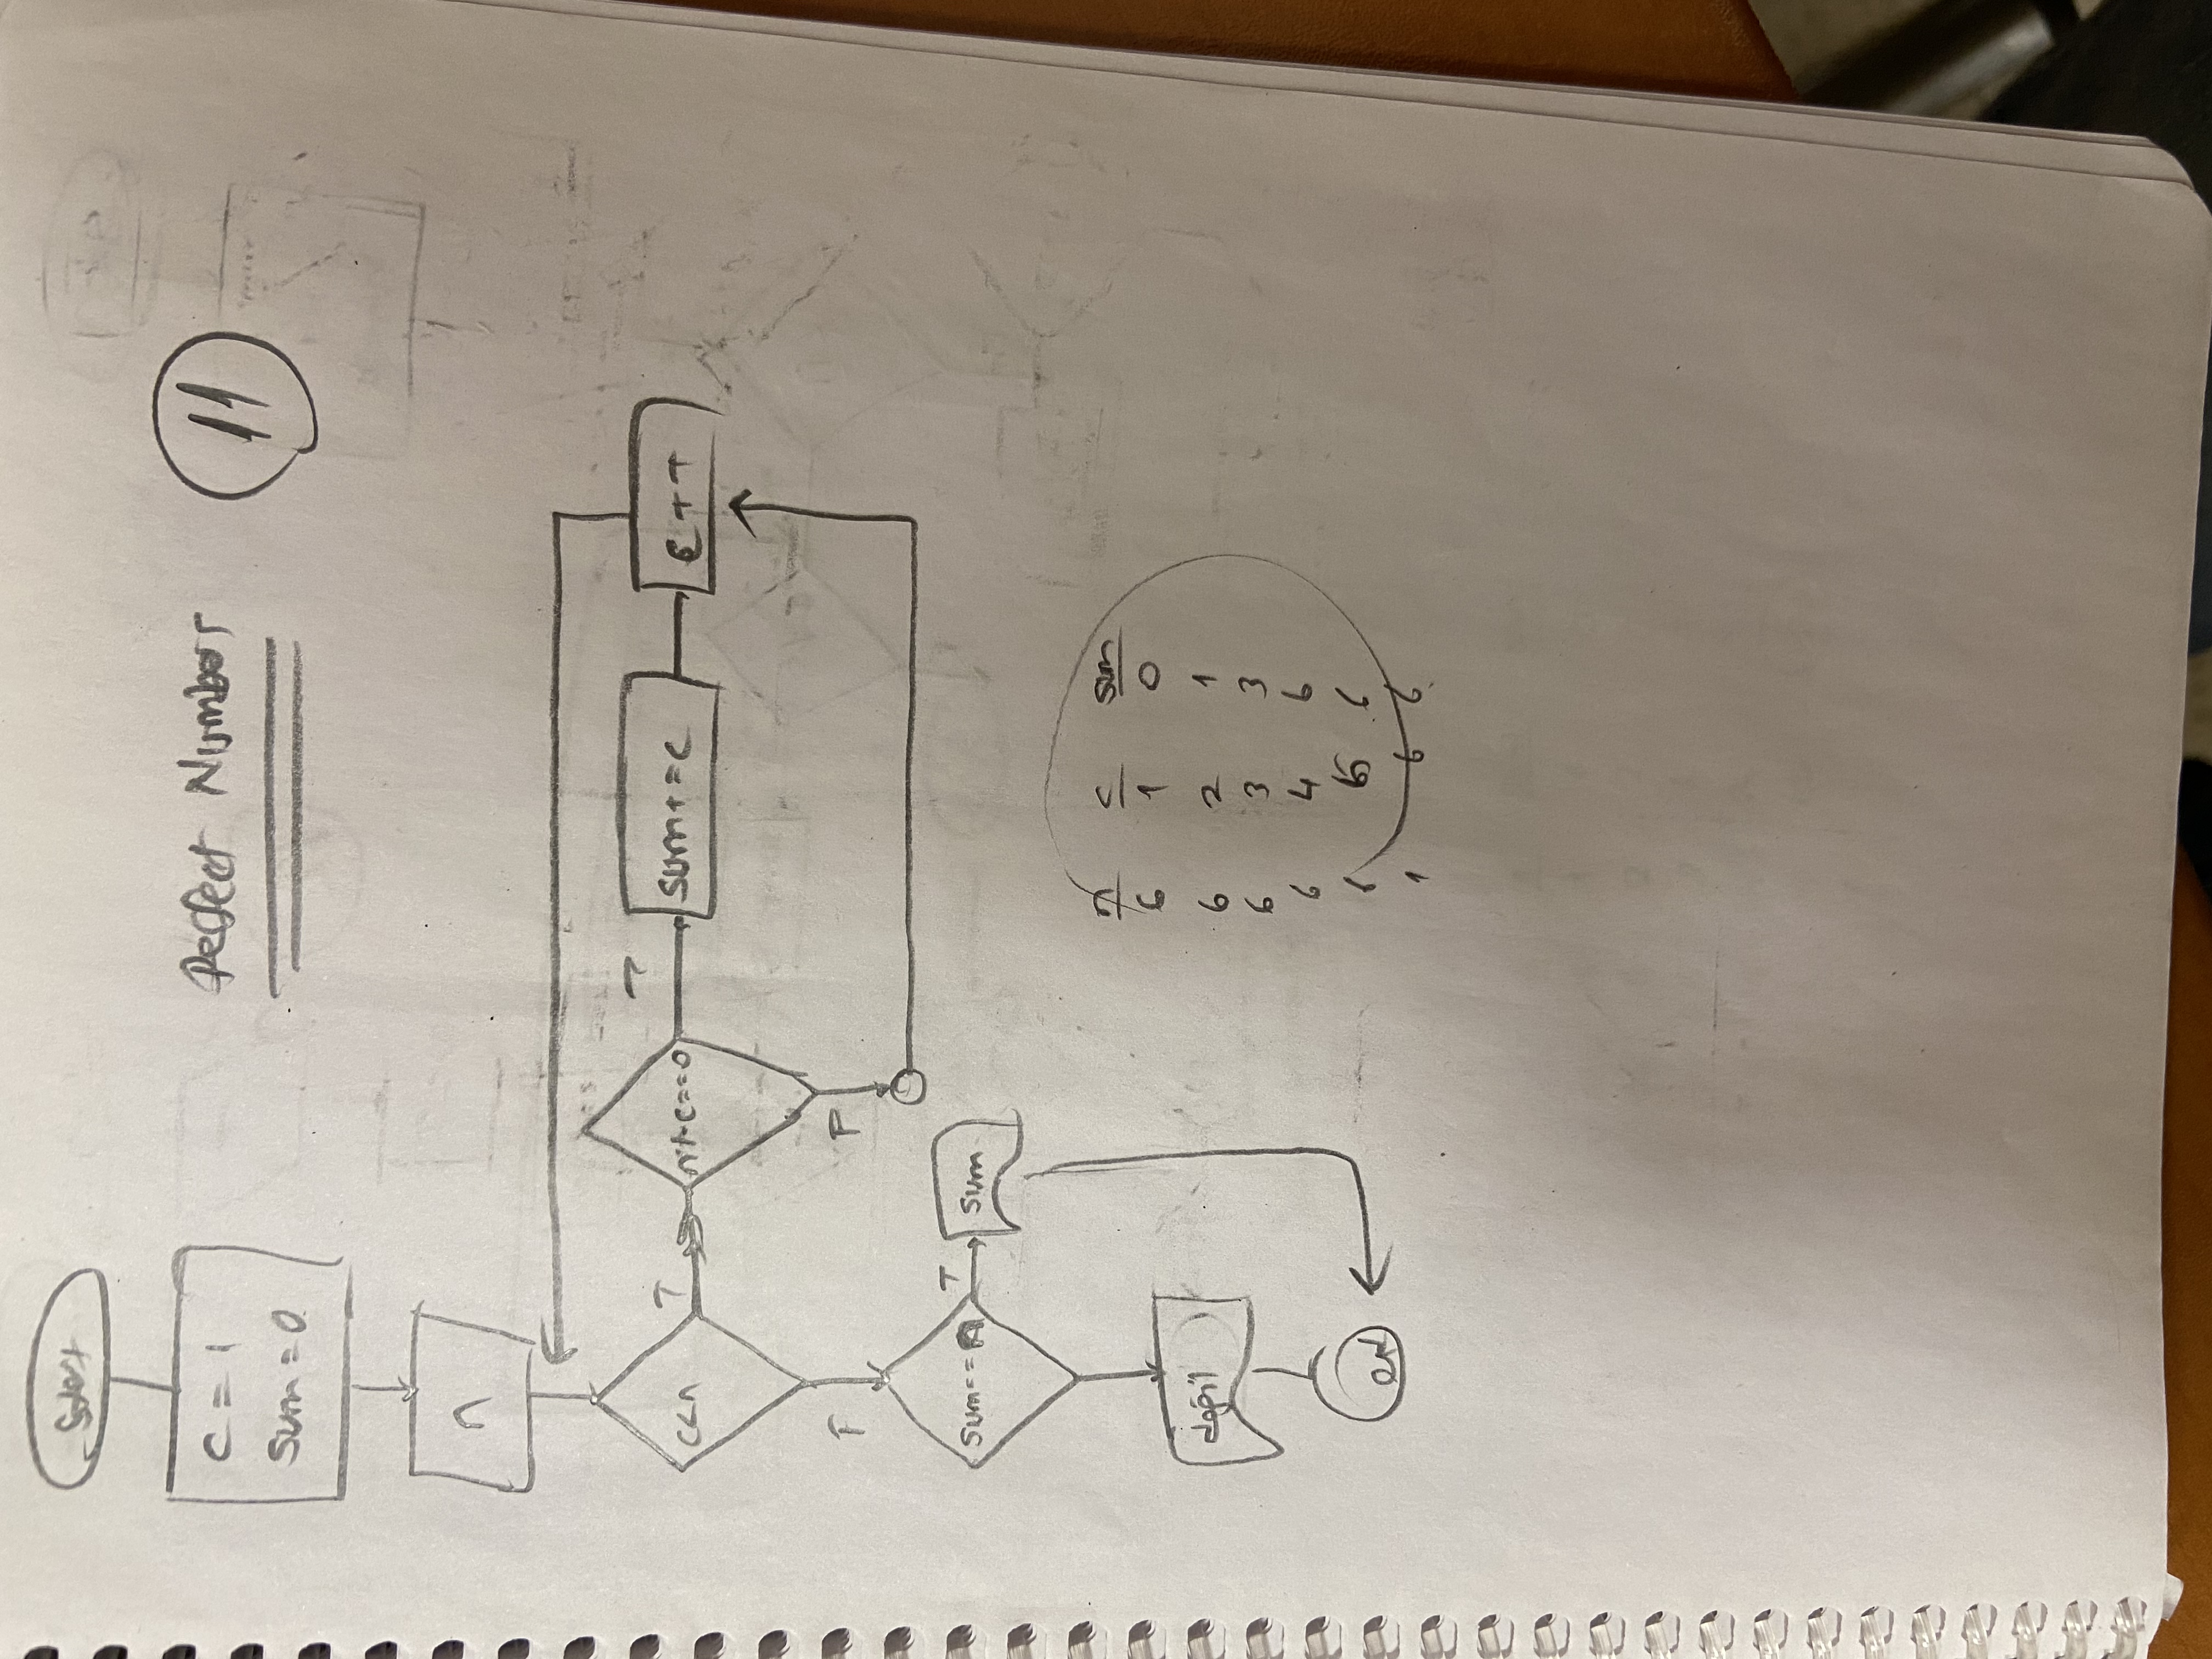 Perfect Number
11
Start
C = 1
Sum = 0
n
C<n
T
n%C==0
T
Sum+=C
C++
F
F
Sum==n
T
Sum
değil
end
n C Sum
6 1 0
6 2 1
6 3 3
6 4 6
5 6
6 6